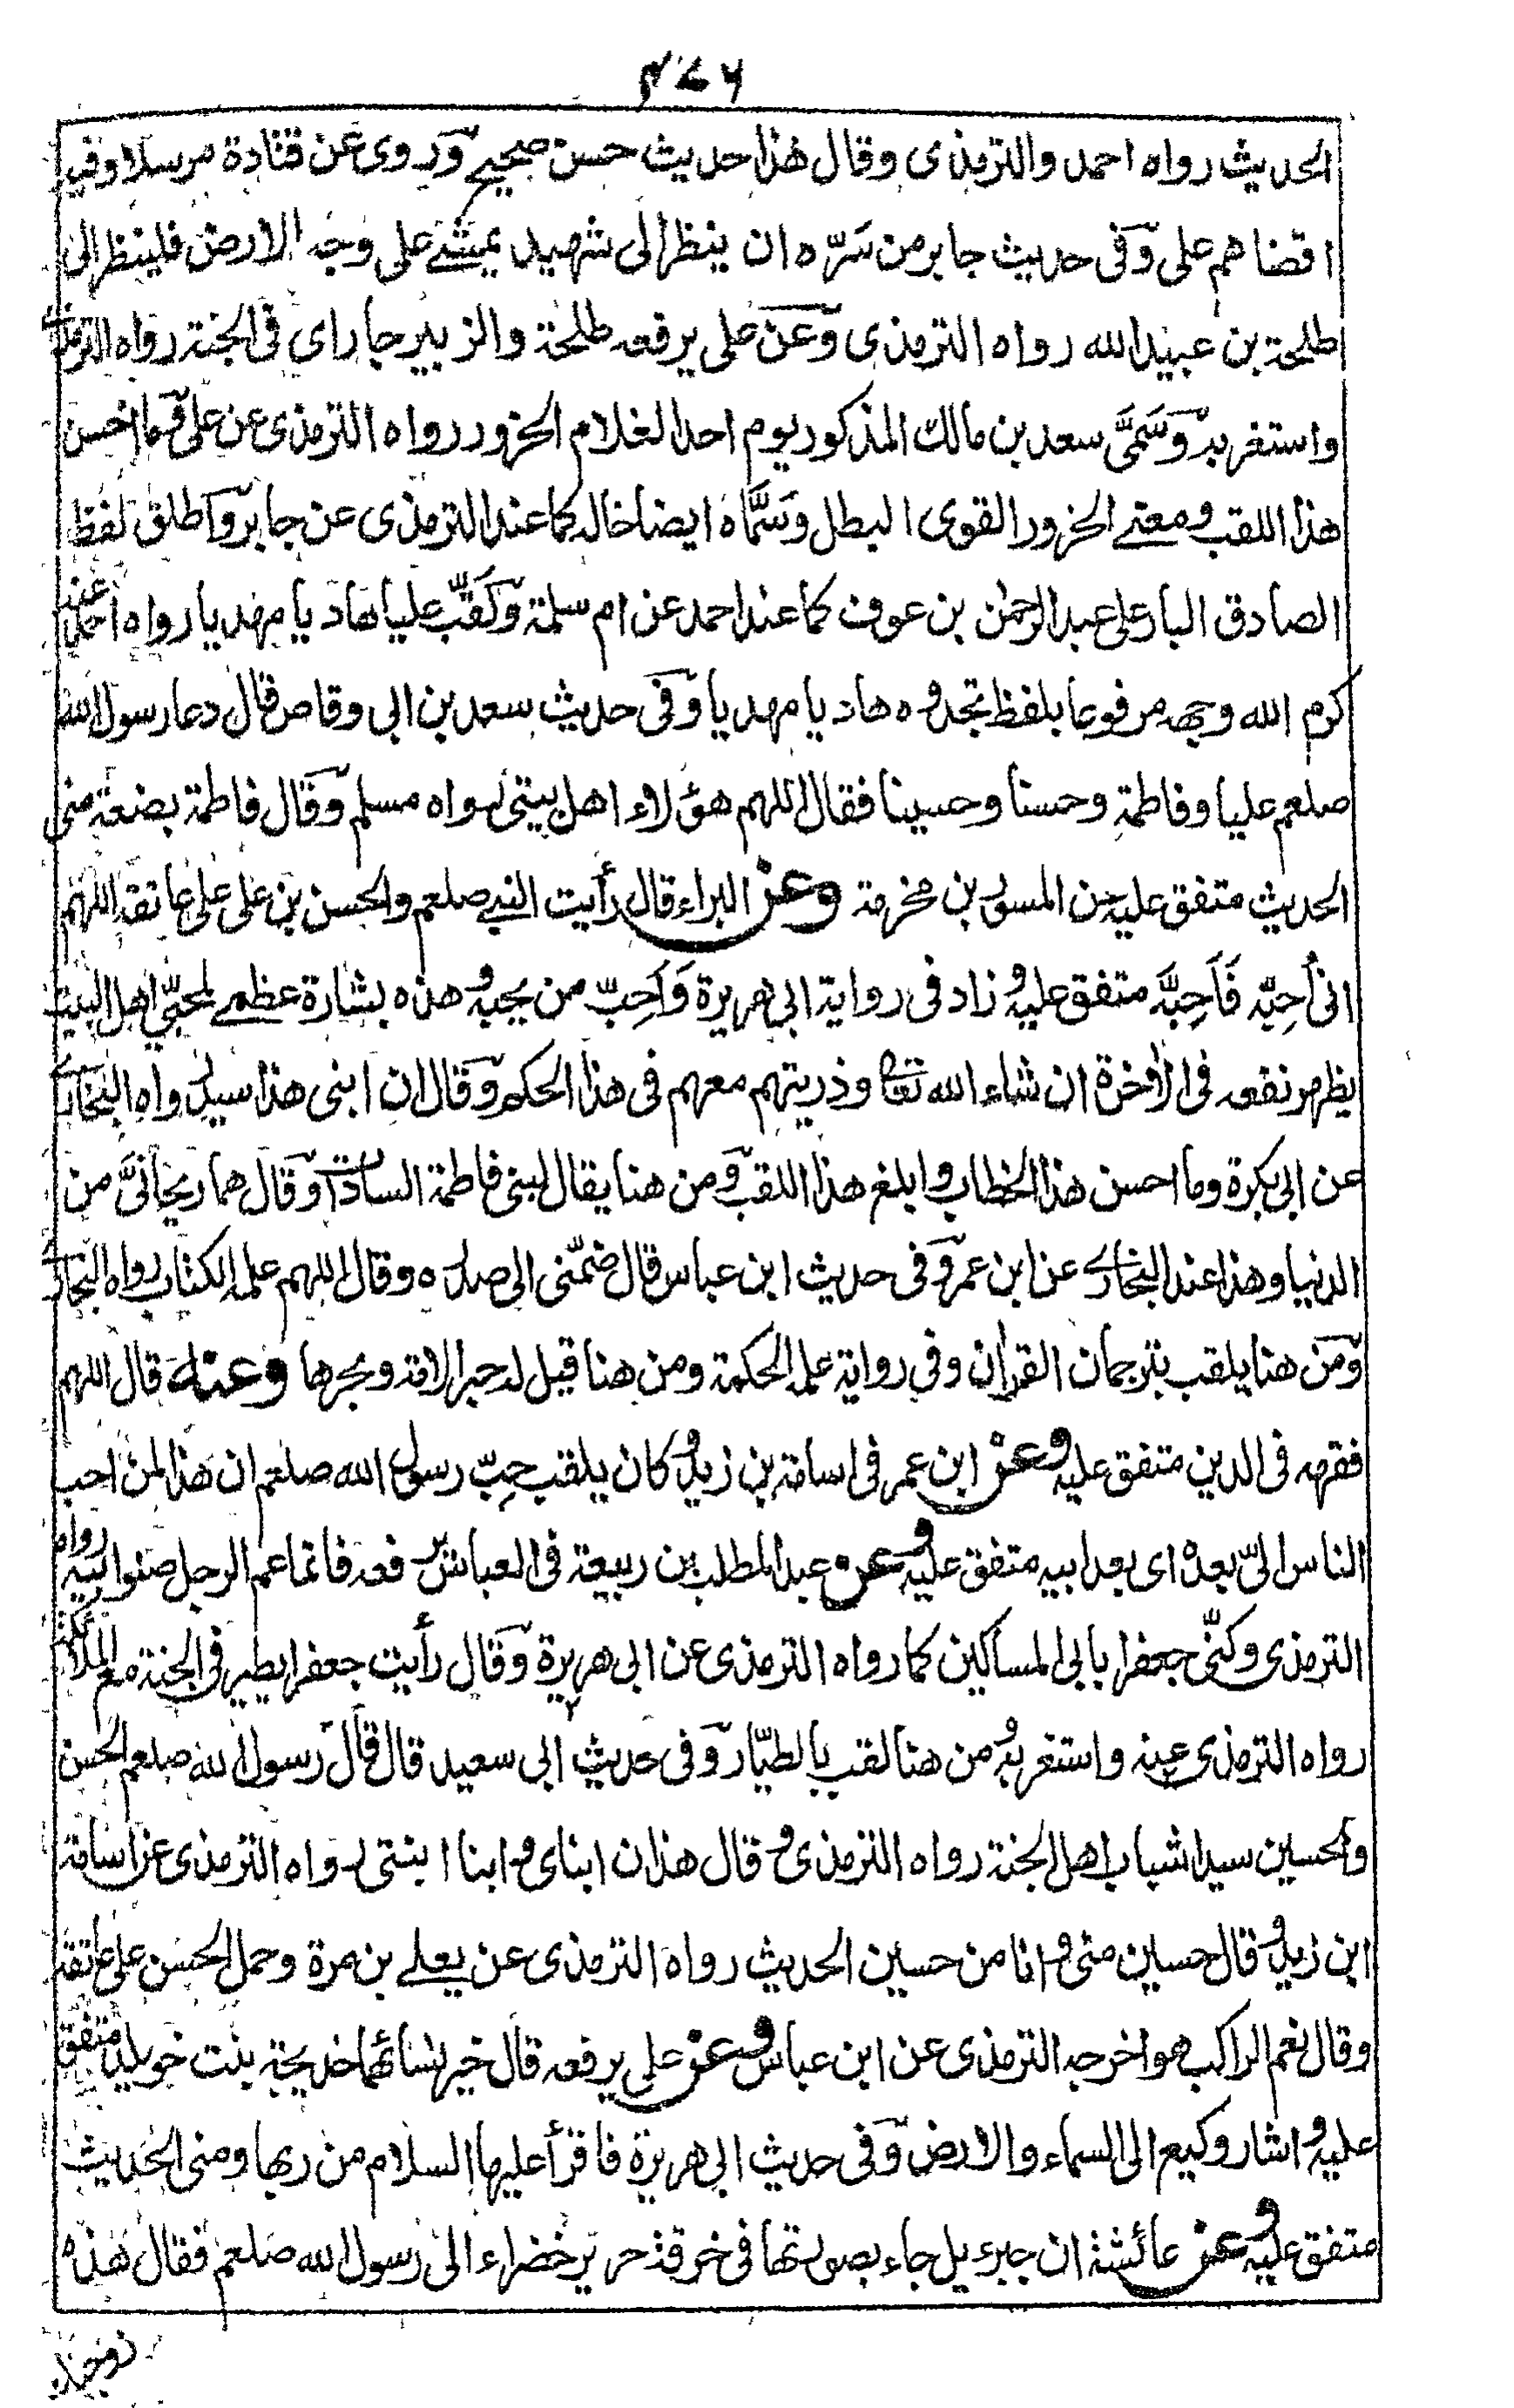 ۴۷۶
الحديث رواه احمد والترمذى وقال هذا حديث حسن صحيح وروى عن قتادة مرسلا وفيه
اقضاهم على وفى حديث جابر من سرّه ان ينظر الى شهيد يمشے على وجه الارض فلينظر الى
طلحة بن عبيد الله رواه الترمذى وعن على يرفعه طلحة والزبير جاراى فى الجنة رواه الترمذى
واستغربه وسَمَّى سعد بن مالك المذكور يوم احد الغلام الحزور رواه الترمذى عن على وما احسن
هذا اللقب ومعنے الحزور القوى البطل وسَمَّاه ايضا خاله كما عند الترمذى عن جابر واطلق لفظ
الصادق البار على عبد الرحمٰن بن عوف كما عند احمد عن ام سلمة ولَقَّب عليا هاديا مهديا رواه احمد عنه
كرم الله وجهه مرفوعا بلفظ تجدوه هاديا مهديا وفى حديث سعد بن ابى وقاص قال دعا رسول الله
صلعم عليا وفاطمة وحسنا وحسينا فقال اللهم هؤلاء اهل بيتى رواه مسلم وقال فاطمة بضعة منى
الحديث متفق عليه عن المسور بن مخرمة وعن البراء قال رأيت النبے صلعم والحسن بن على على عاتقه اللهم
انى اُحِبّه فَاَحِبَّه متفق عليه وزاد فى رواية ابى هريرة وَاَحِبّ من يحبه وهذه بشارة عظمے لمحبّى اهل البيت
يظهر نفعه فى الآخرة ان شاء الله تعالى وذريتهم معهم فى هذا الحكم وقال ان ابنى هذا سيد رواه البخارى
عن ابى بكرة وما احسن هذا الخطاب وابلغ هذا اللقب ومن هنا يقال لبنى فاطمة السادة وقال هما ريحانىَّ من
الدنيا وهذا عند البخارے عن ابن عمر وفى حديث ابن عباس قال ضمّنى الى صدره وقال اللهم علمه الكتاب رواه البخارى
ومن هنا يلقب بترجمان القرآن وفى رواية علمه الحكمة ومن هنا قيل له حبر الامة وبحرها وعنه قال اللهم
فقهه فى الدين متفق عليه وعن ابن عمر فى اسامة بن زيد وكان يلقب حِبّ رسول الله صلعم ان هذا لمن احب
الناس الىّ بعده اى بعد ابيه متفق عليه وعن عبد المطلب بن ربيعة فى العباس يرفعه فانما عم الرجل صنو ابيه رواه
الترمذى وكنّى جعفرا بابى المساكين كما رواه الترمذى عن ابى هريرة وقال رأيت جعفرا يطير فى الجنة مع الملائكة
رواه الترمذى عنه واستغربه ومن هنا لقب بالطيّار وفى حديث ابى سعيد قال قال رسول الله صلعم الحسن
والحسين سيدا شباب اهل الجنة رواه الترمذى وقال هذان ابناى وابنا ابنتى رواه الترمذى عن اسامة
ابن زيد وقال حسين منى وانا من حسين الحديث رواه الترمذى عن يعلے بن مرة وحمل الحسن على عاتقه
وقال نعم الراكب هو اخرجه الترمذى عن ابن عباس وعن على يرفعه قال خير نسائها خديجة بنت خويلد متفق
عليه واشار وكيع الى السماء والارض وفى حديث ابى هريرة فاقرأ عليها السلام من ربها ومنى الحديث
متفق عليه وعن عائشة ان جبرءيل جاء بصورتها فى خرقة حرير خضراء الى رسول الله صلعم فقال هذه
زوجتك